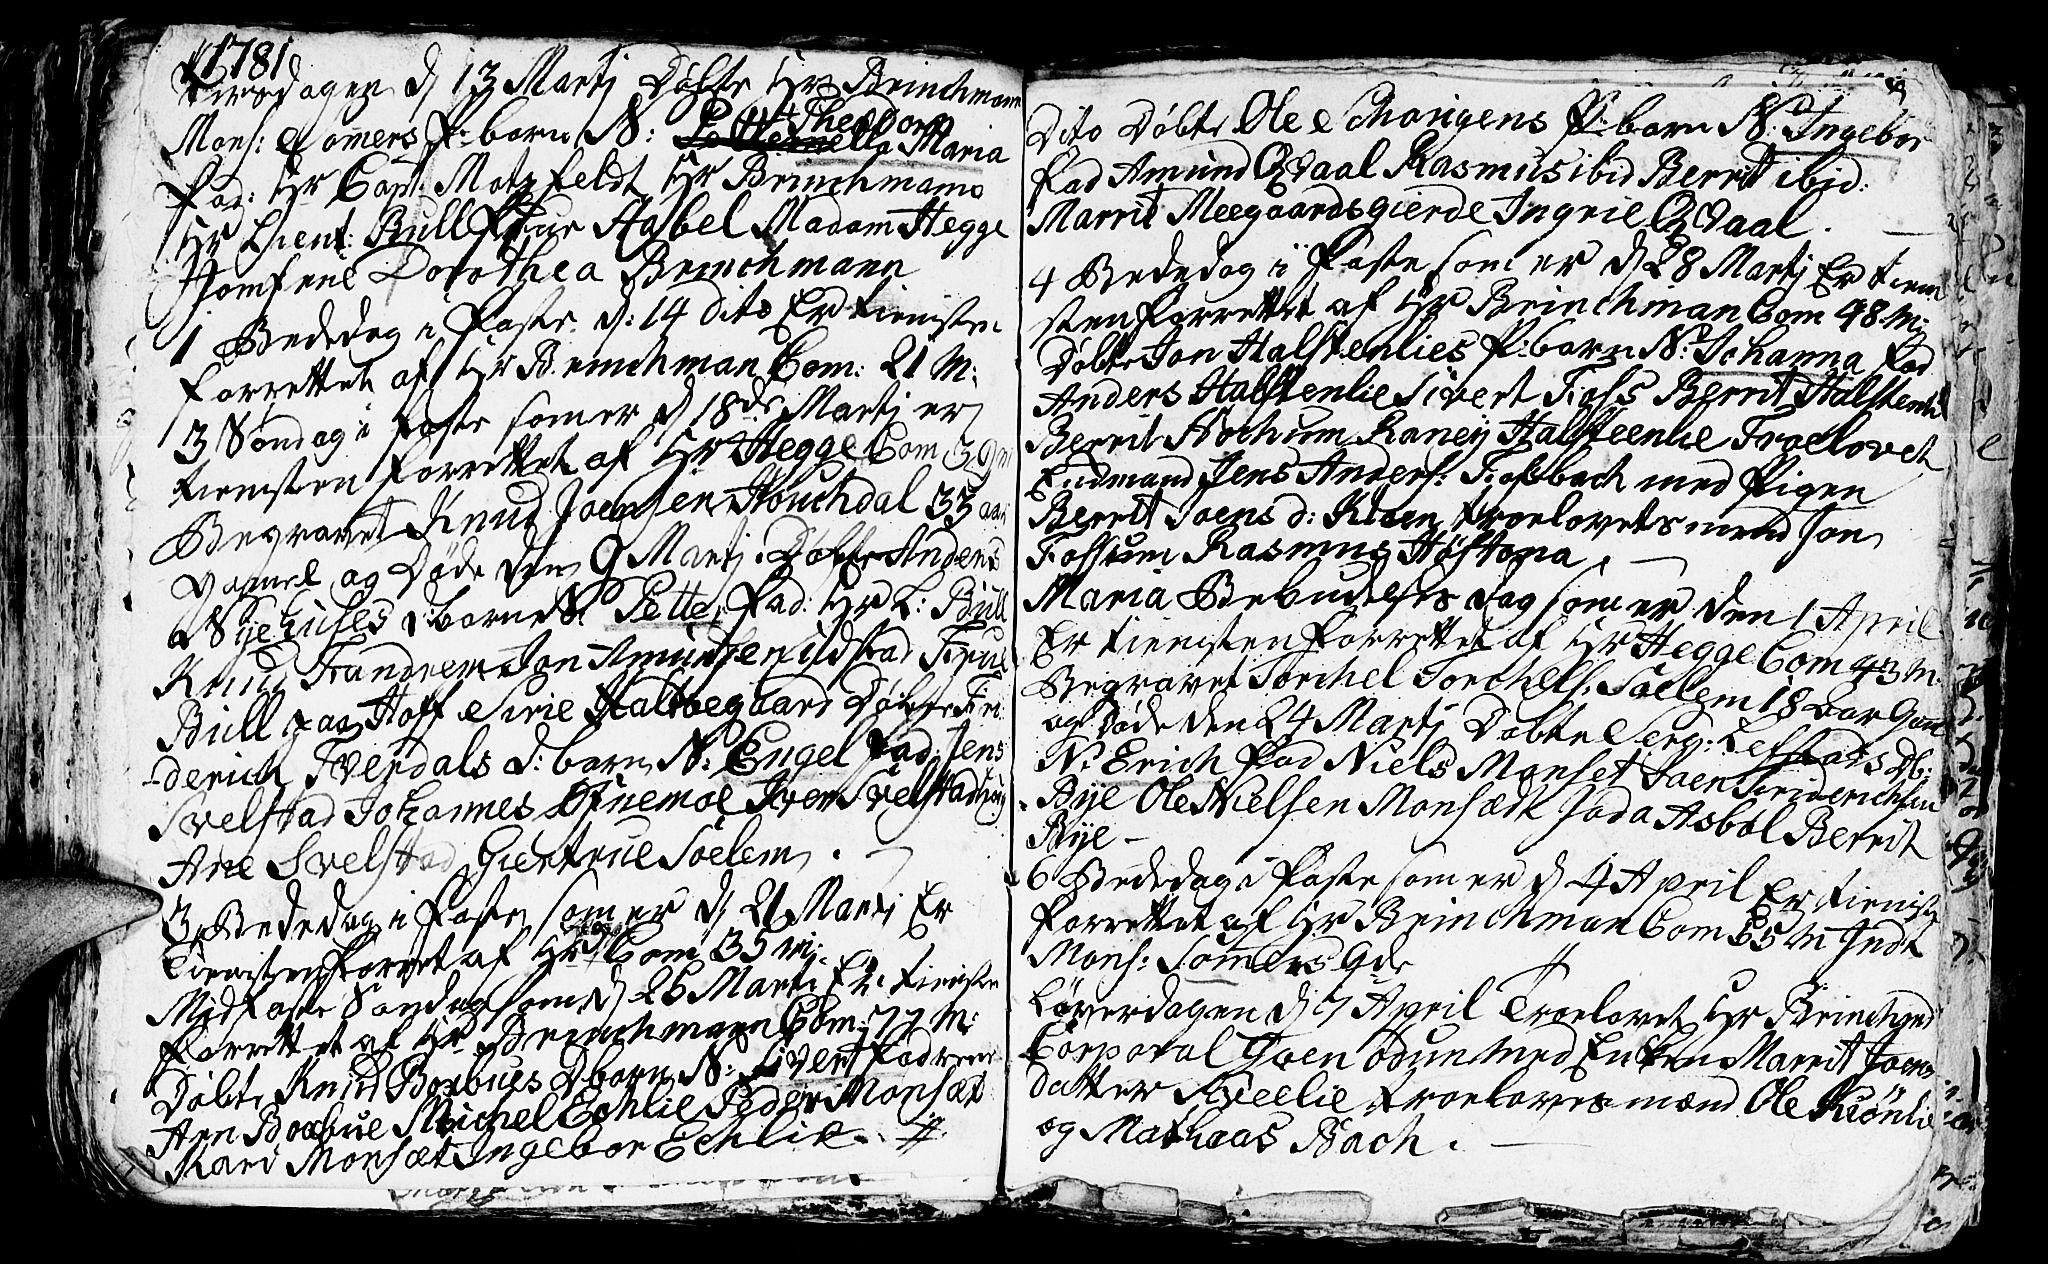 1781
Tirsdagen d 13 Martj Døbte Hr Brinchmann
Mons: Somers P: barn N: Theodora Maria
Fad: Hr Capt: Motzfeldt Hr Brinchmans
Hr Lieut: Bull Frue Aabel Madam Hegge
Jomfrue Dorothea Brinchmann
1 Bededag i Faste d: 14 dito Er tienisten
forrettet af Hr Brinchman Com: 21 M:
3 Søndag i Faste som er d 18de Martj er
tienisten forrettet af Hr Hegge Com 39 m
Begravet Knud Joensen Houchdal 33 aar
gamel og Døde den 9 Martj. Døbte Anders
Nyehuses d:barn N: Petter Fad: Hr L: Bull
Knud Trandem Jon Amundsen udstad Frue
Bull paa Hoff Sirie Haltbegaard Døbte Fri
derich Tverdals d: barn N: Engel Fad: Jens
Svelstad Johannes Iver Svelstad
Ane Svelstad Giertrue Soelem.
3 Bededag i Faste som er d 21 Martj Er
Tienisten forret af Hr Com 35 m:
Midfaste Søndag som d 25 Marti Er tienisten
forrettet af Hr Brinchmann Com: 77 M:
Døbt Knud Borhues D barn N: Sivert Fadrene
Arn Borhue Michel Echlie Peder Monsæt
Kari Monsæt Ingebor Echlie.
Dito Døbt Ole Schougens P: barn N: Ingebor
Fad Amund Qvaal Rasmus ibid Berrit ibid:
Marrit Meegaardsgierde Ingrie Qvaal.
4 Bededag i Faste som er d 28 Martj Er tieni
sten forrettet af Hr Brinchman Com 48 M:
Døbte Jon Halstenlies P: barn N: Johanna Fad
Anders Halstenlie Sivert Foss Berrit Halstenlie
Berrit Hochum Raneij Halsteenlie Troelovet
Enckmand Jens Anders: Fossbach med Pigen
Berrit Joens d: Kleen troelovets mend Jon
Fossum Rasmus Høstona.
Maria Bebudelses dag som er den 1 April
Er tienisten forrettet af Hr Hegge Com 43 M:
Begravet Torchel Torchels: Soelem 18 aar Gam
og Døde den 24 Martj Døbte Serg: Db:
N: Erich Fad Niels Monset Joen Friderichsen
Bye Ole Nielsen Monsædt Jada Asbøl Berrit
Bye -
6 Bededag i Faste som er d 4 April Er tienist
forrettet af Hr Brinchman Com 65 M Indt
Mons: Somers Gde
Løverdagen d 7 April Troelovet Hr Brinchm
Corporal Goen Odun med Encken Marrit Joens
datter Sveelie troeloves mænd Ole Kiønlie
og Mathias Bach.